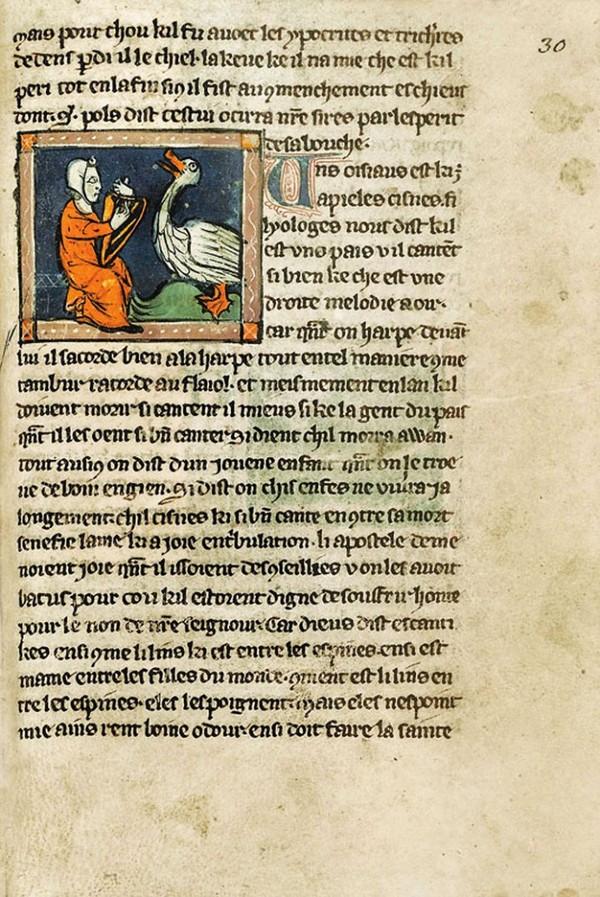 30
mais pour chou kil fu avoec les ypocrites et trich'res
dedens p'di il le chiel. la keue ke il na mie che est kil
peri tot en la fin si9 il fist au 9menchement eschieus
pols dist cestui ocirra nr̄e sires par lesperit
de sa bouche.
Uns oisiaus est ki
apieles cisnes. fi
hyologes nous dist kil
est vns pais v il cantēt
si bien ke che est vne
droite melodie a oir.
car qn̄t on harpe deuāt
lui il sacorde bien a la harpe tout en tel maniere 9me
tambur racorde au flaiol. et meismement en lan kil
doiuent morir si cantent il mieus si ke la gent du pais
qn̄t il les oent si bn̄ canter si dient chil morra awan.
tout ausi9 on dist dun jouene enfant qn̄t on le troe
ue de boin engien. si dist on chis enfes ne viura ja
longement. chil cisnes ki si bn̄ cante en9tre sa mort
senefie lame ki a joie en t'bulation. li apostele deme
noient joie qn̄t il issoient des 9seilles v on les auoit
batus pour cou kil estoient digne de souffrir honte
pour le non de nr̄e seignour. Car dieus dist es canti
kes ensi 9me li lins ki est entre les espines. ensi est
mame entre les filles du monde. 9ment est li lins en
tre les espines. eles les poignent. mais eles nespoint
mie ains rent boine odour. ensi doit faire la sainte